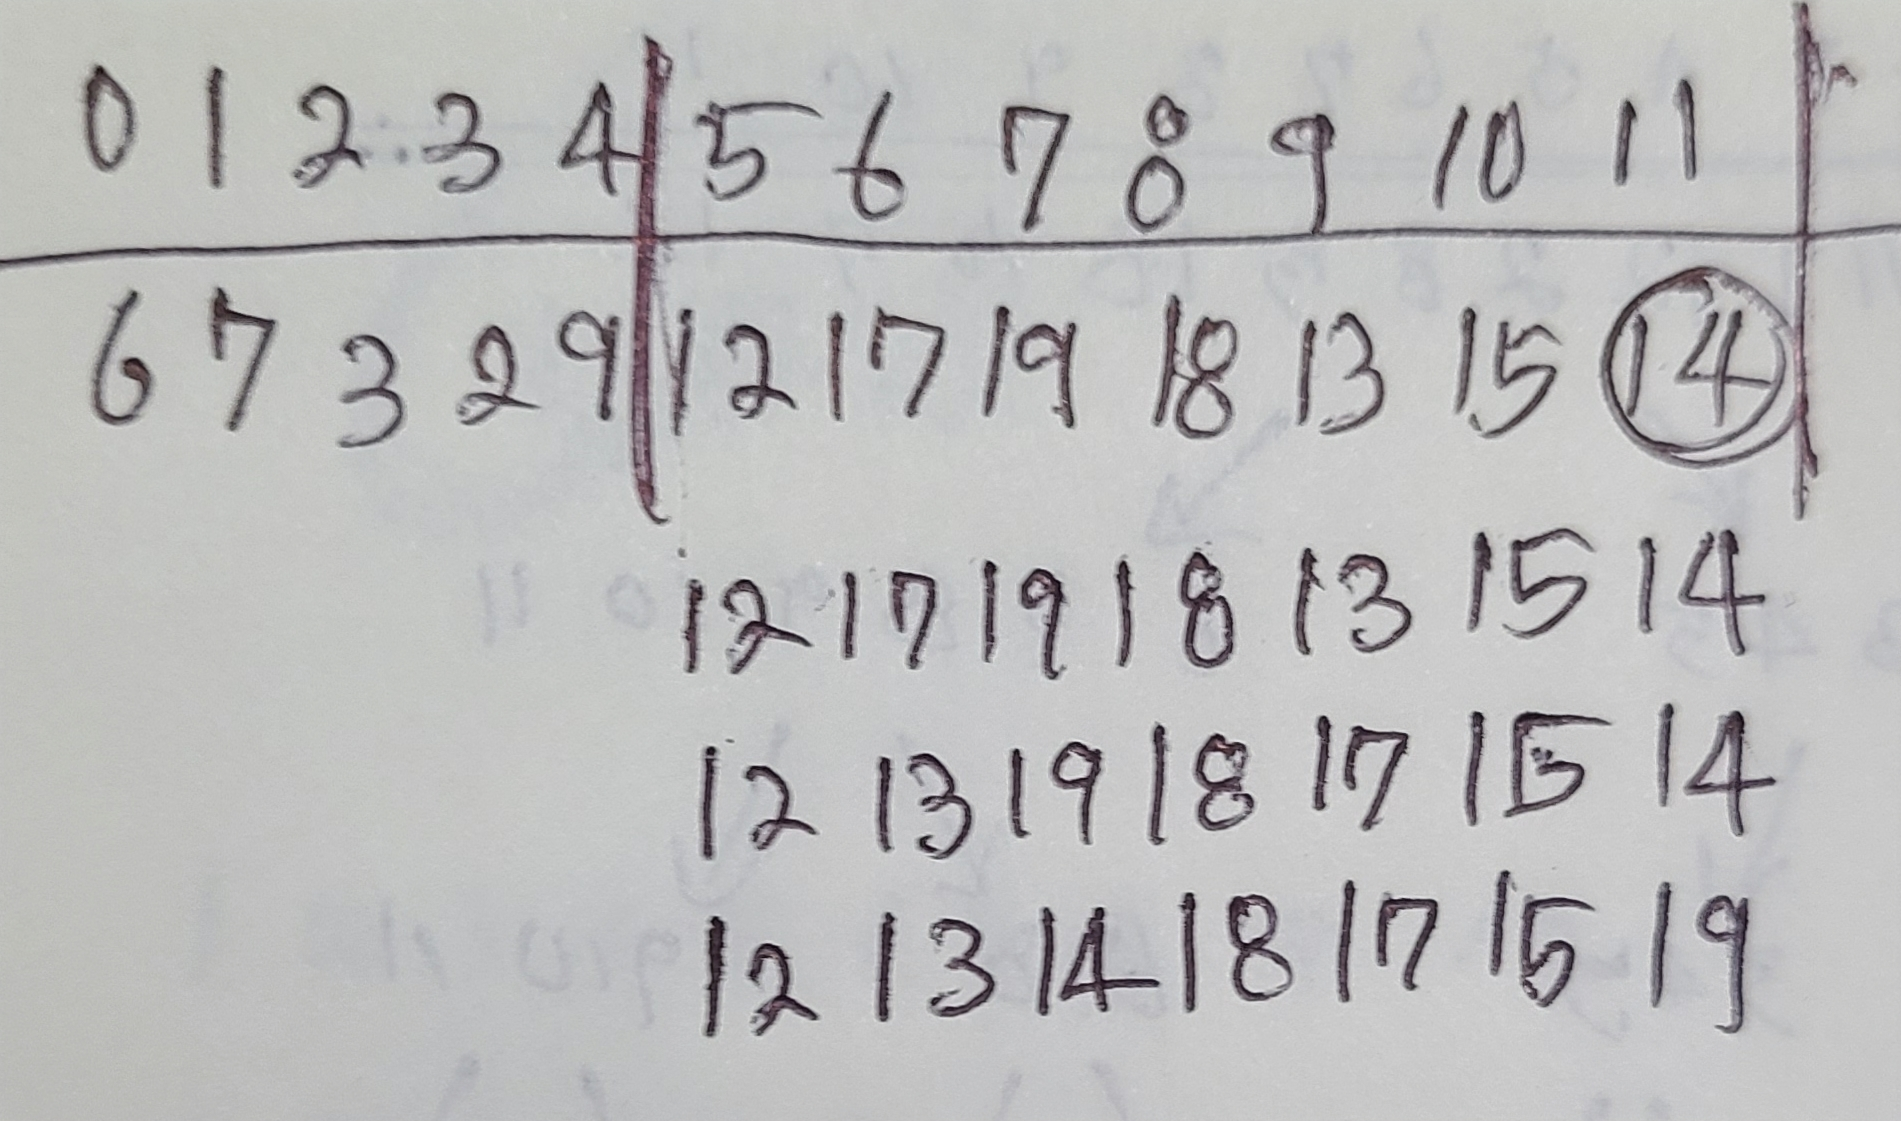 0 1 2 3 4 5 6 7 8 9 10 11
6 7 3 2 9 12 17 19 18 13 15 14
12 17 19 18 13 15 14
12 13 19 18 17 15 14
12 13 14 18 17 15 19